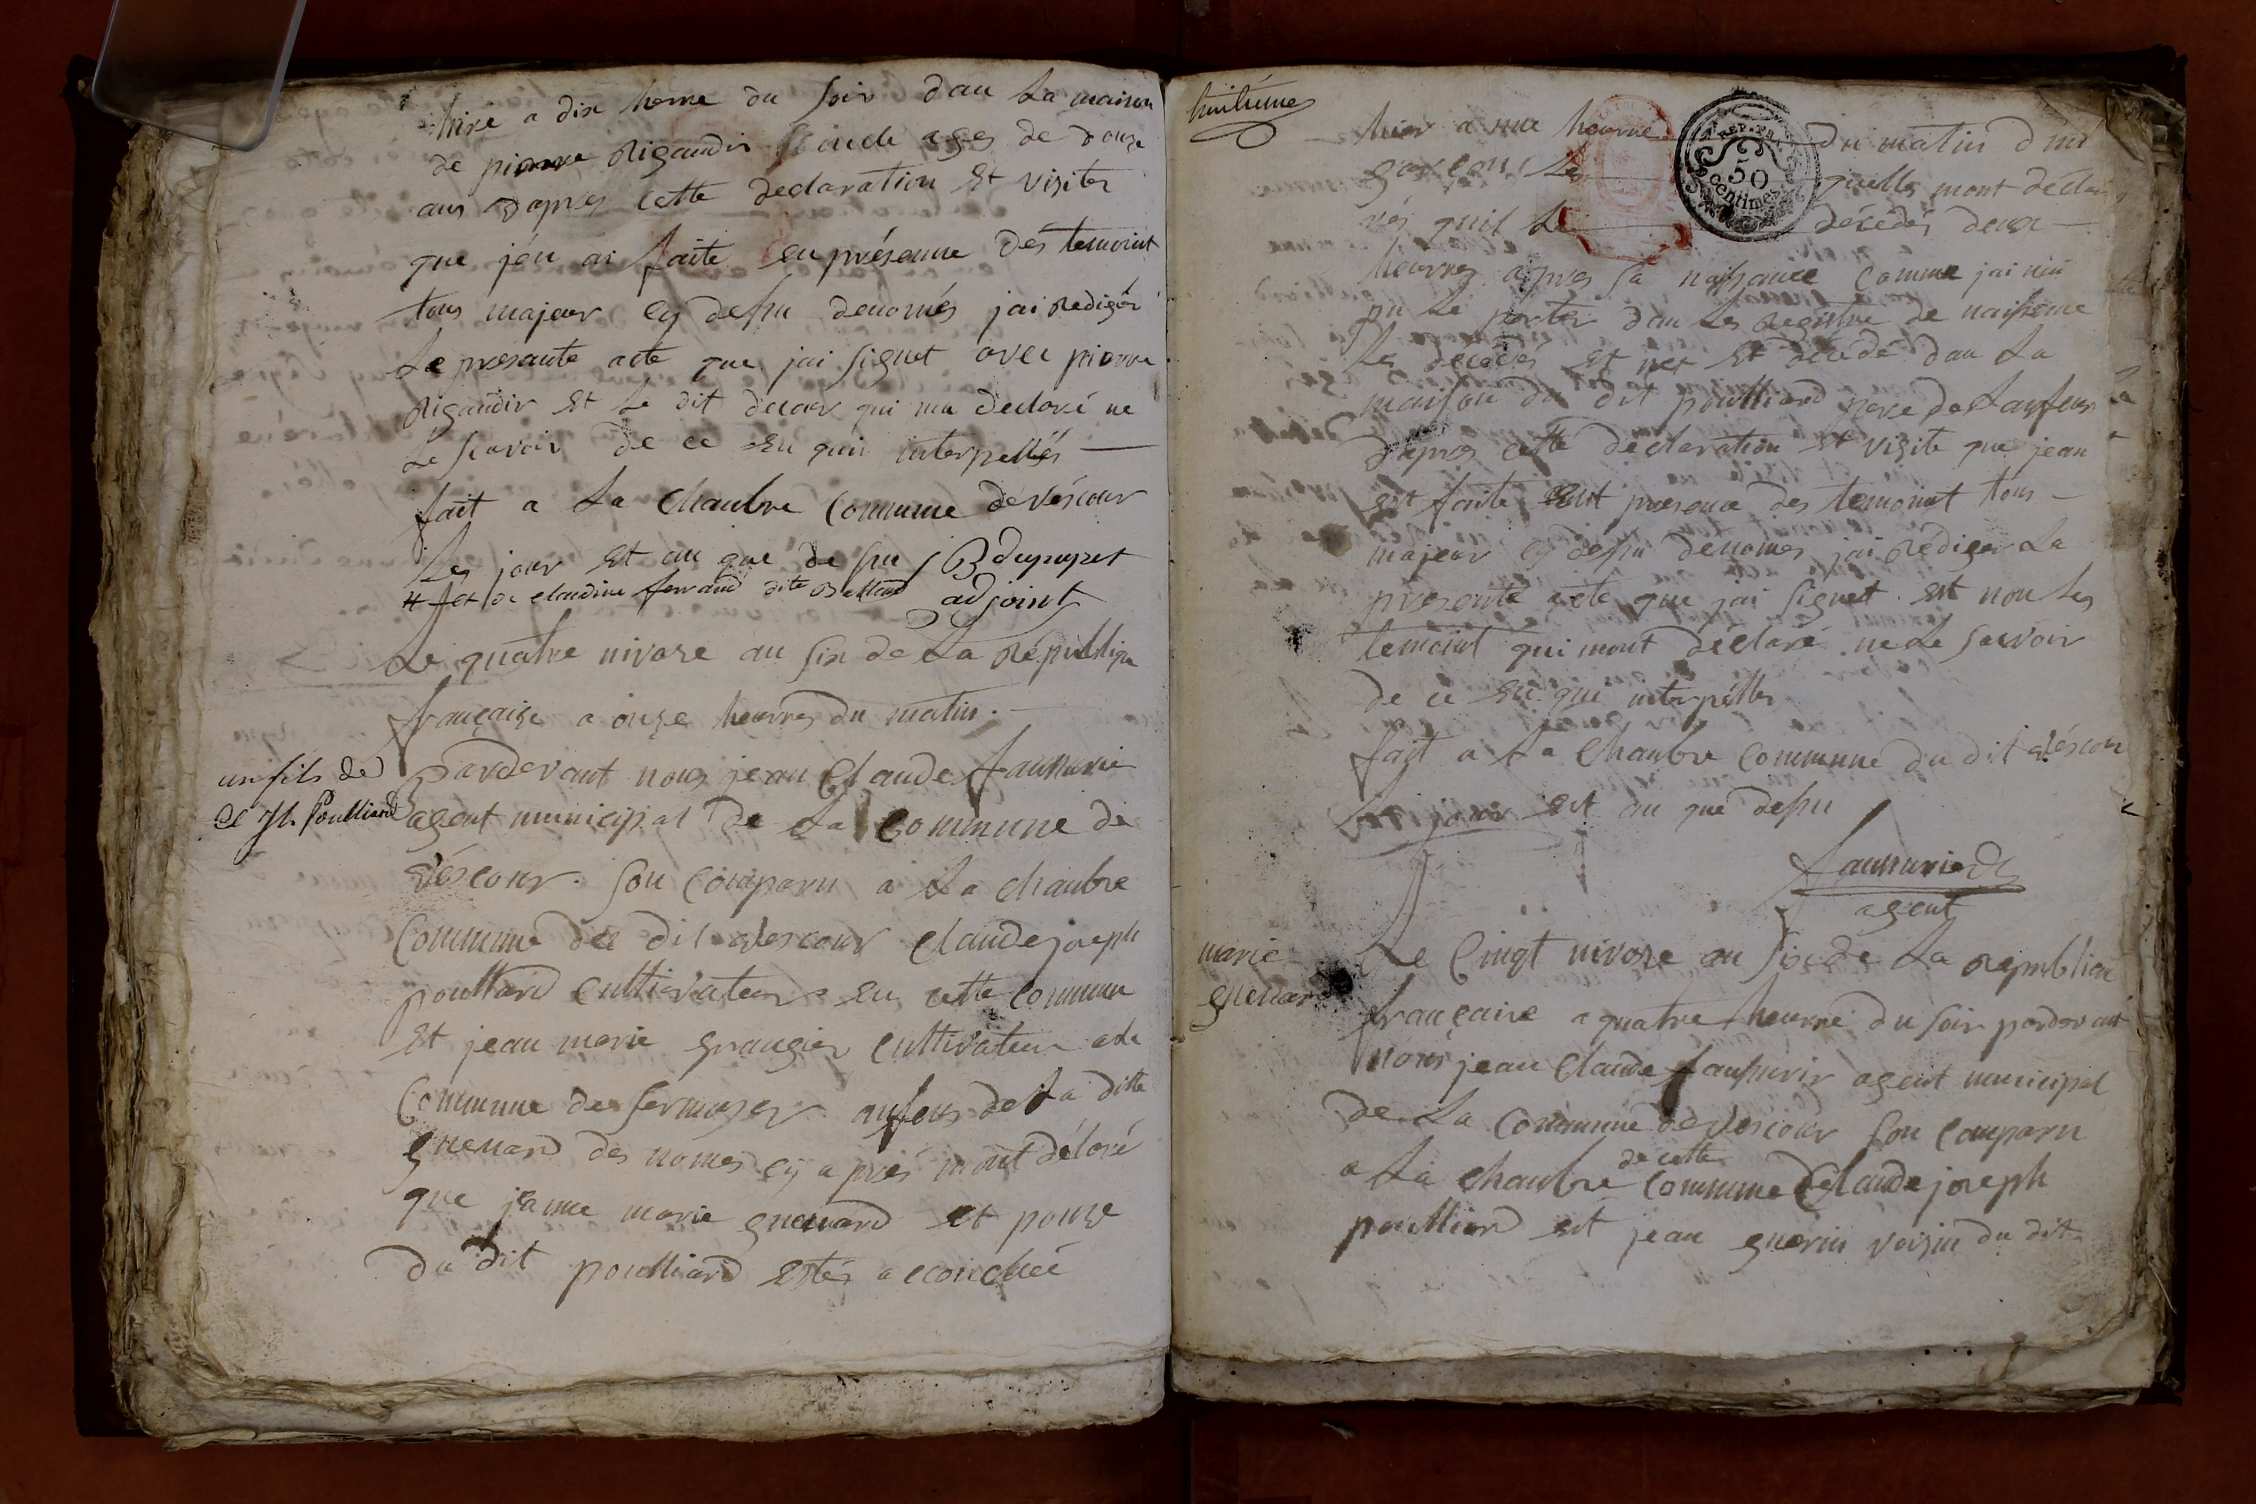 hire a dix heure du soir dan La maison
de pierre Rigaudir oncle ages de douze
ans D'apres cette declaration Et visites
que jén ai faite en présence Dés temoint
tous majeur cy desu denomés jai Redigér
Le presante acte que jai signet avec pierre
Rigaudir Et Le dit decour qui ma declaré ne
Le scavoir De ce Enquii interpellés
fait a La Chanbre Commune de véscour
Les jour Et an que de su / B dupupet
# et de claudine ferrand dite adjoint
Le quatre nivoze an six de La Républiqu
française a onze heurres du matin.
un fils de
Cl Jh. Poulliard
Pardevant nous jean Claude faussurier
agent municipal De La Commune de
véscour. son Comparu a La chanbre
Commune du dit vescour Claude joseph
poulliard Cultivateur en cette Commune
Et jean marie grangier Cultivateur
Commune de sermoyer de La ditte
guenard des nómés cÿ aprés mont déloré
que janne marie guenard et pouze
Du dit poulliard Estés accouchée
huitieme
hier a une heurre du matin d'un
garcons Les quelles mont décla
rés quil Le décédés deux
heurres apres sa naisance Comme jai nin
pu Le porter dan Les Registre de naisence
Les décédés Et nét Et décédé dan La
maison du dit poulliard pere de Lanfens
D'apres cette déclaration Et visite que jean
est faite Ent presence des temoint tous
majeur cy desu denomes jai Rediger La
presente acte que jai signet. Et non Les
temoint qui mont déclaré ne Le savoir
De ce En que interpélles
fait a La Chanbre Commune du dit véscour
Les jour Et an que desu
faussurier
agent
marie
guenard
Le vingt nivoze an six de La republicu
française a quatre heurre du soir pardevant
nous jean Claude faussurier agent municipal
De La Commune de vescour son Comparu
a La Chanbre de cette Commune Claude joseph
poulliard est jean guerin voizin du dit
REP. FRA.
50
centimes